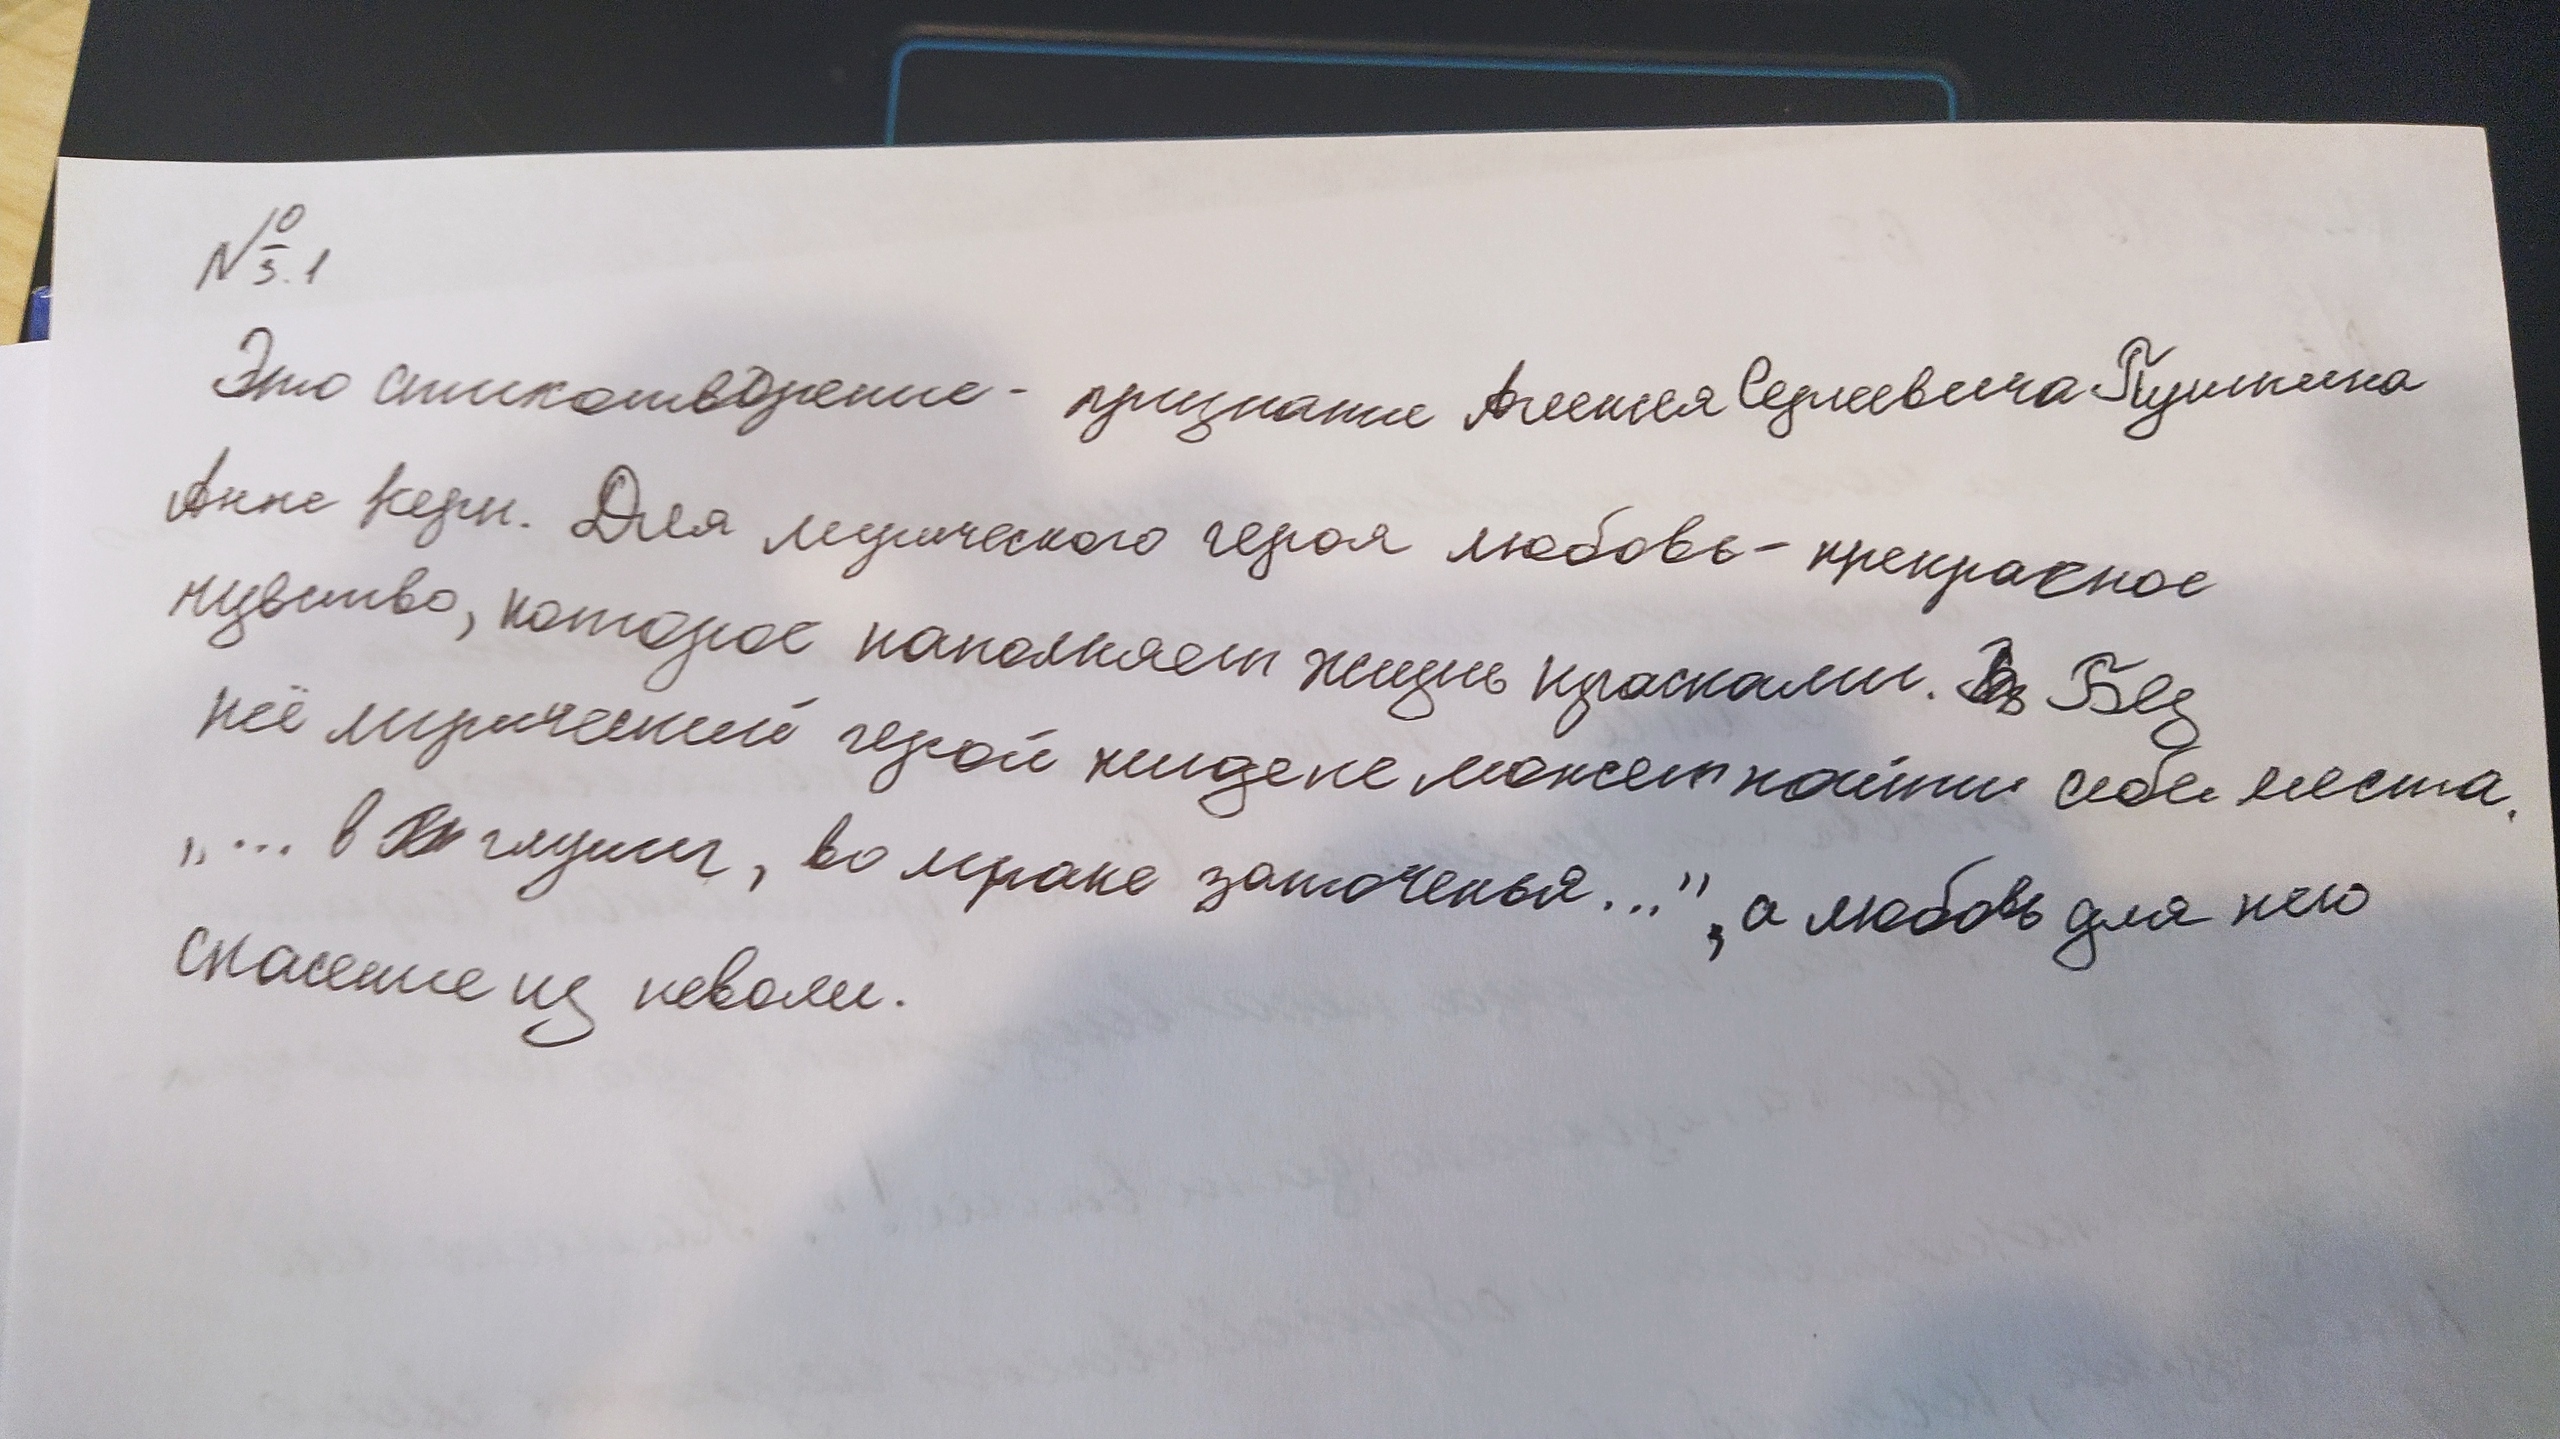 № 3.1
Это стихотворение - признание Алексея Сергеевича Пушкина
Анне Керн. Для лирического героя любовь - прекрасное
чувство, которое наполняет жизнь красками. Без
неё лирический герой нигде не может найти себе места.
„... в глуши, во мраке заточенья...", а любовь для него
спасение из неволи.